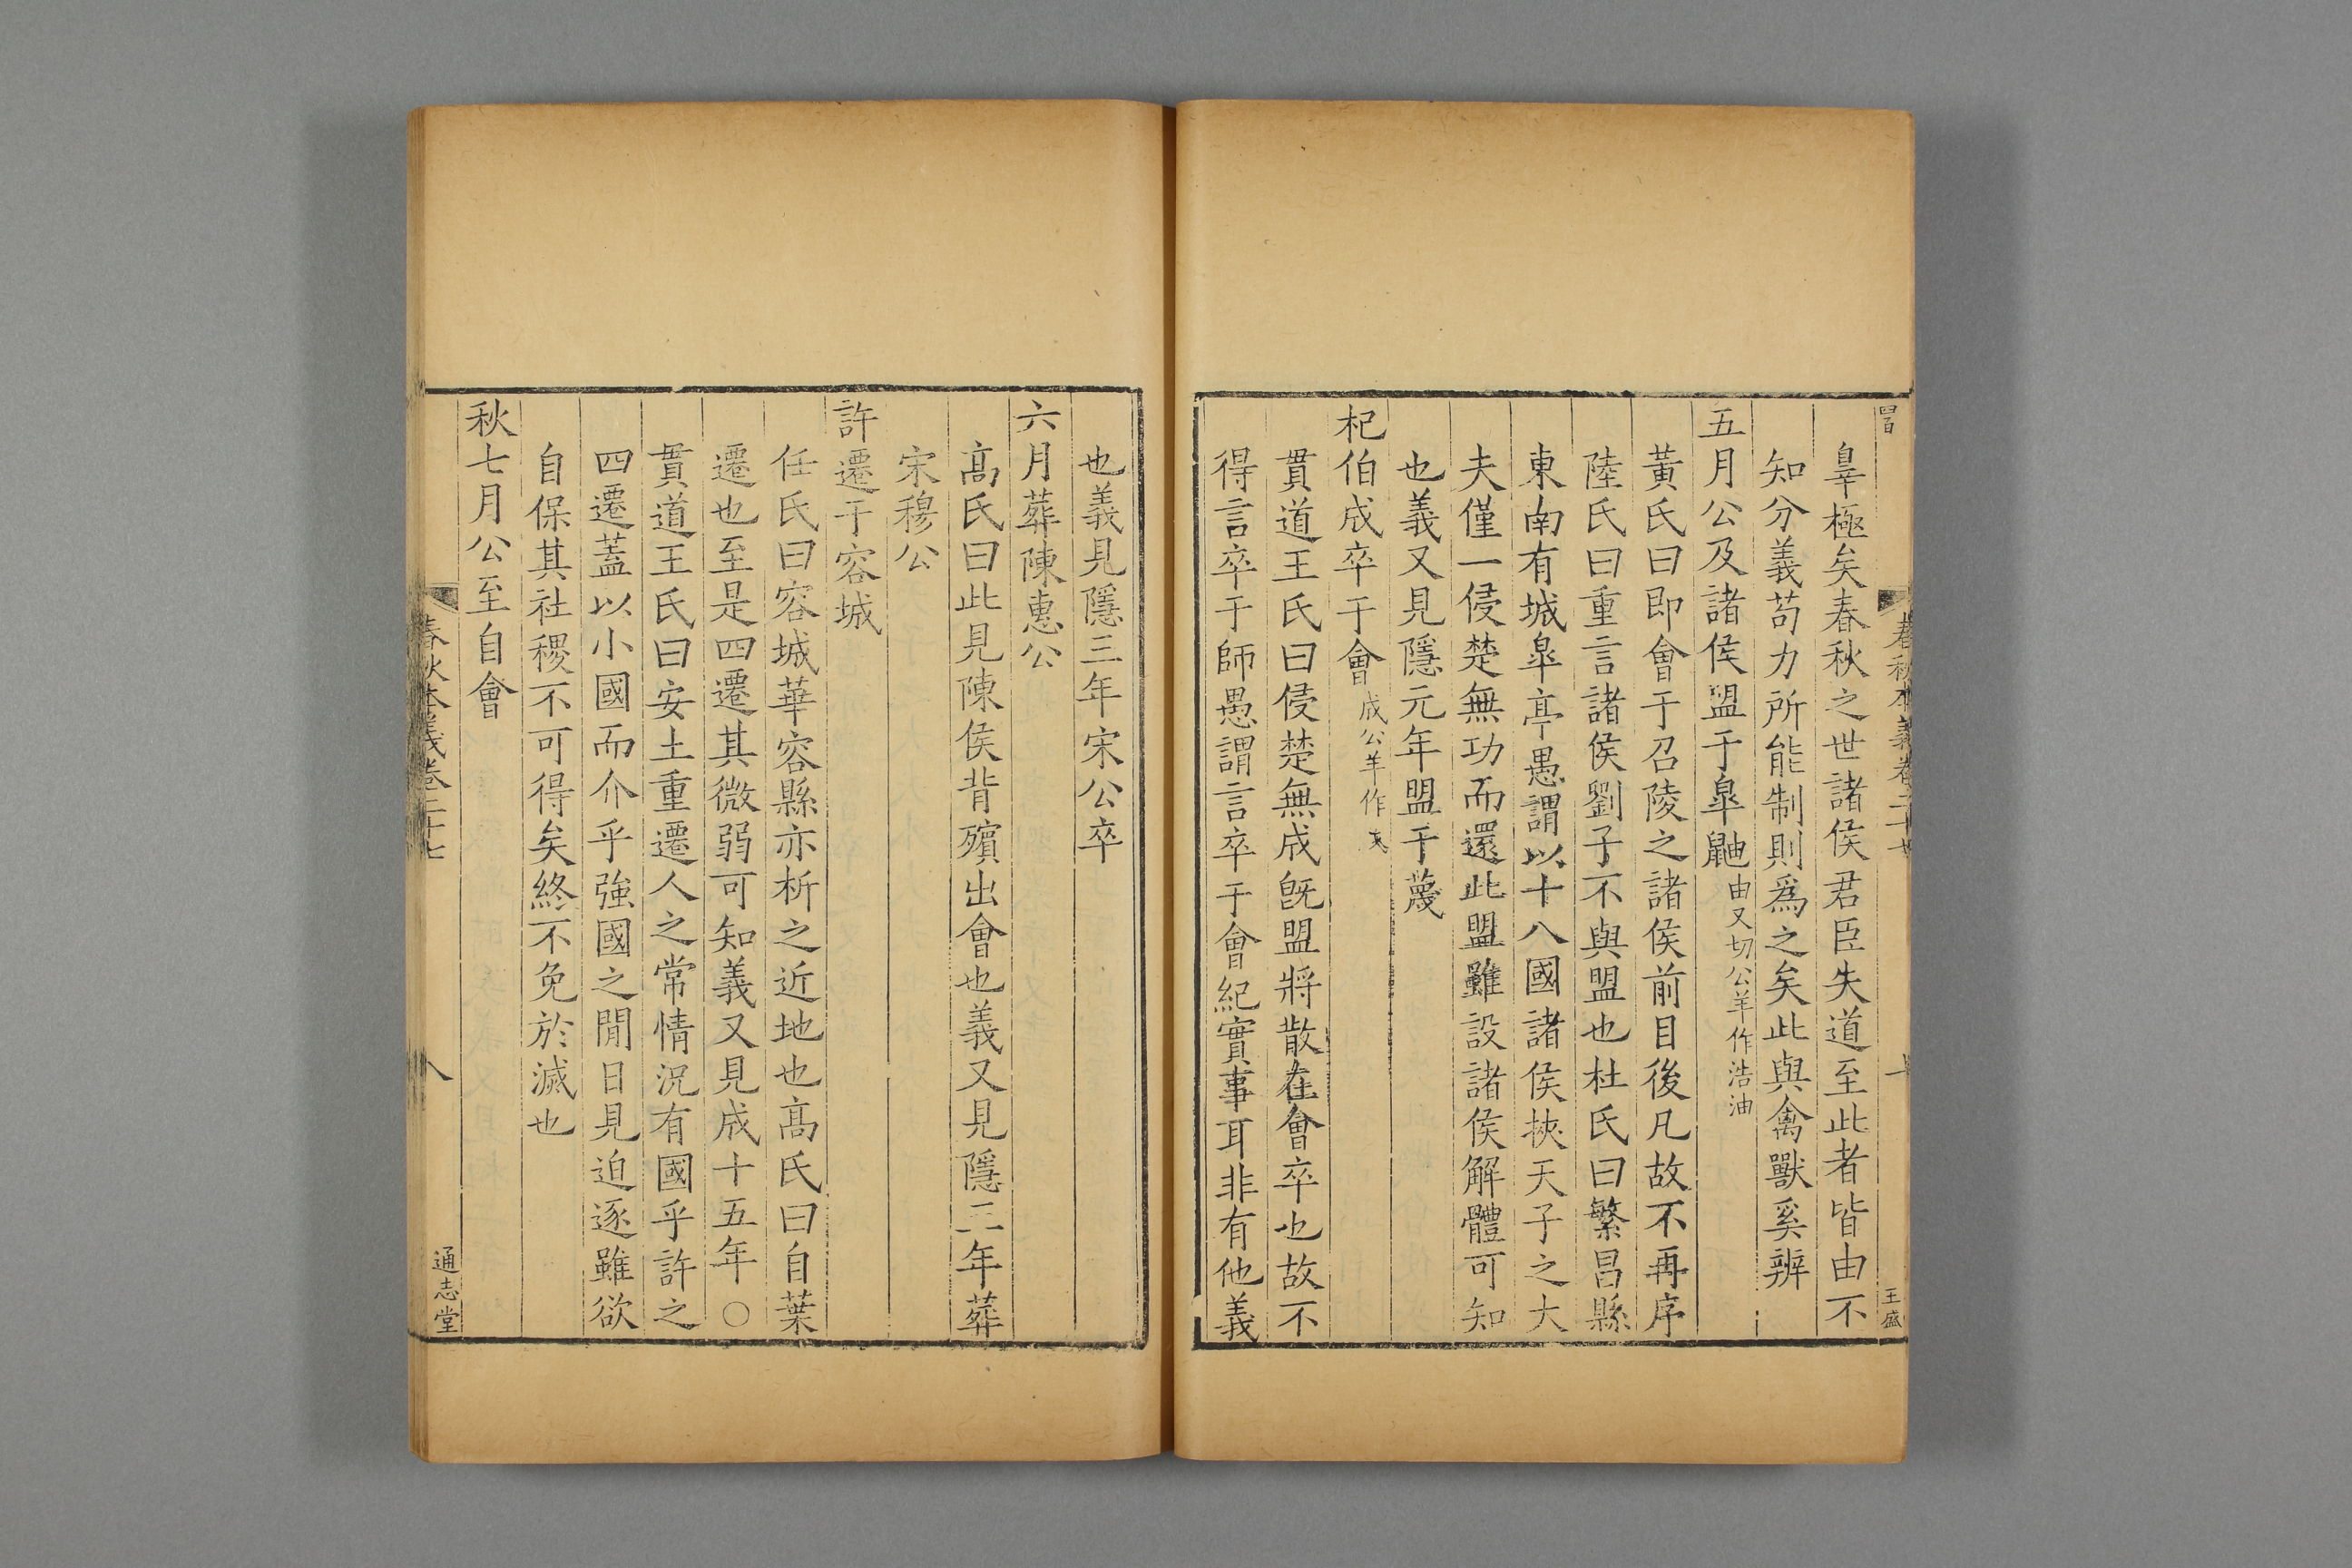 辠極矣春秋之世諸侯君臣失道至此者皆由不
知分義苟力所能制則爲之矣此與禽獸奚辨
五月公及諸侯盟于皐鼬由又切公羊作浩油
黃氏曰即會于召陵之諸侯前目後凡故不再序
陸氏曰重言諸侯劉子不與盟也杜氏曰繁昌縣
東南有城皐亭愚謂以十八國諸侯挾天子之大
夫僅一侵楚無功而還此盟雖設諸侯解體可知
也義又見隱元年盟于蔑
杞伯成卒于會成公羊作戊
貫道王氏曰侵楚無成旣盟將散在會卒也故不
得言卒于師愚謂言卒于會紀實事耳非有他義
也義見隱三年宋公卒
六月葬陳惠公
髙氏曰此見陳侯背殯出會也義又見隱三年葬
宋穆公
許遷于容城
任氏曰容城華容縣亦析之近地也髙氏曰自葉
遷也至是四遷其微弱可知義又見成十五年○
貫道王氏曰安土重遷人之常情況有國乎許之
四遷蓋以小國而介乎強國之閒日見迫逐雖欲
自保其社稷不可得矣終不免於滅也
秋七月公至自會
春秋本義卷二十七
八
通志堂